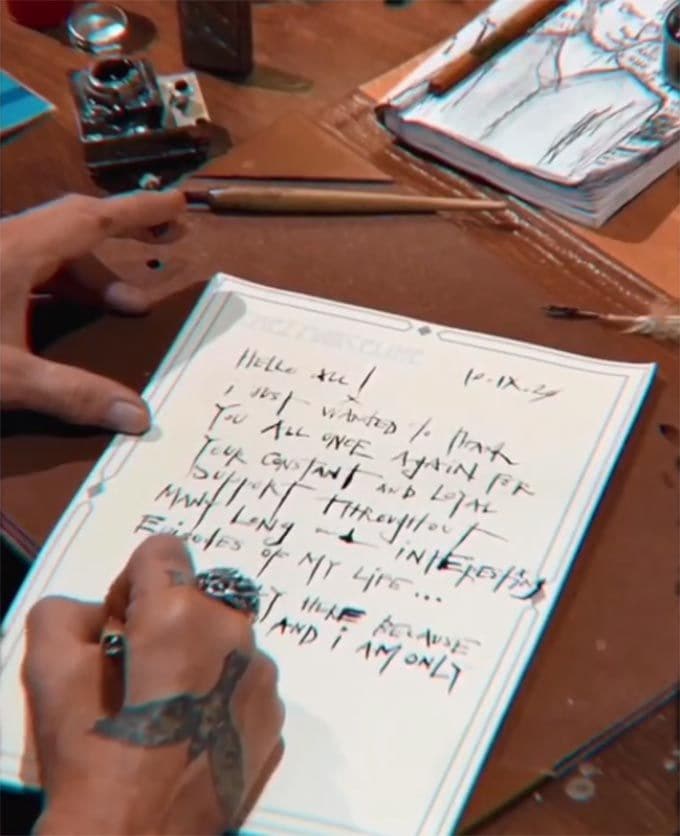 Hello All! 10.IX.24
I just wanted to thank
You All once again for
Your constant and loyal
support throughout
many long interesting
Episodes of my life...
here because
and i am only